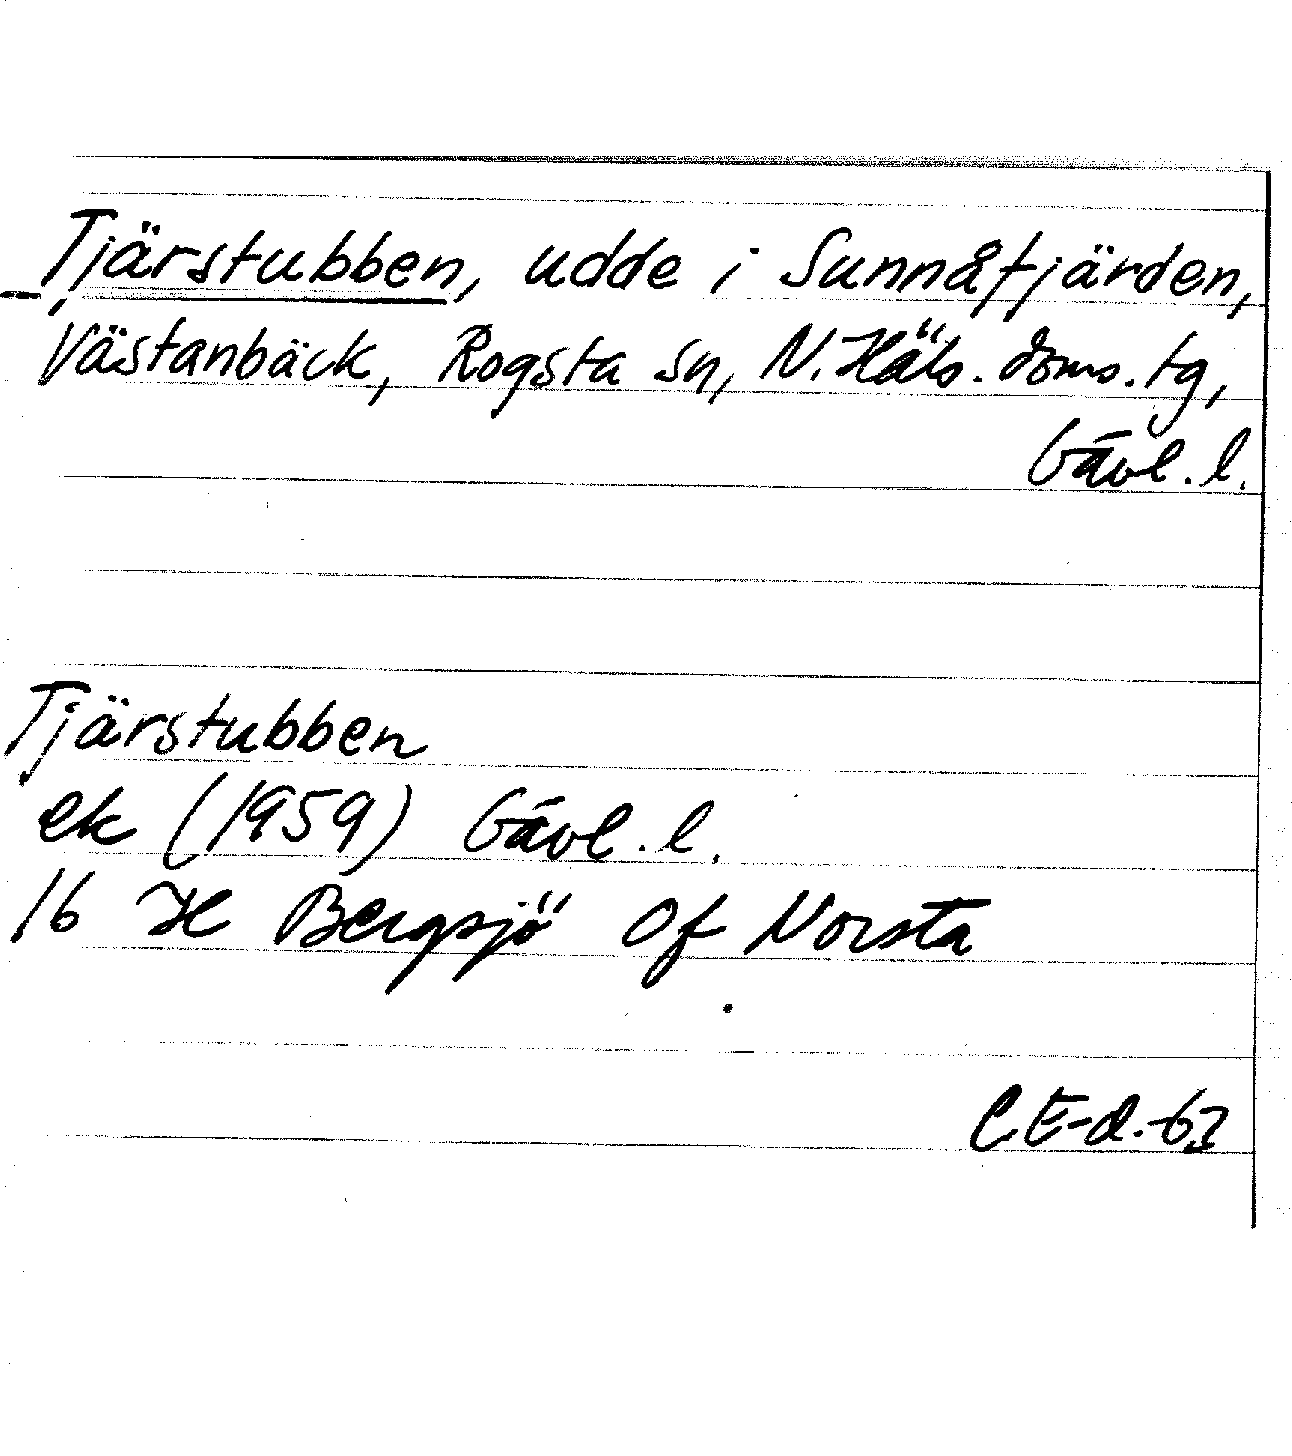 Tjärstubben, udde i Sunnåfjärden,
Västanbäck, Rogsta sn, N. Häls. doms. tg,
Gävl. l.
Tjärstubben
ek (1959) Gävl. l.
16 H Bergsjö Of Norsta
C. E-d. -63